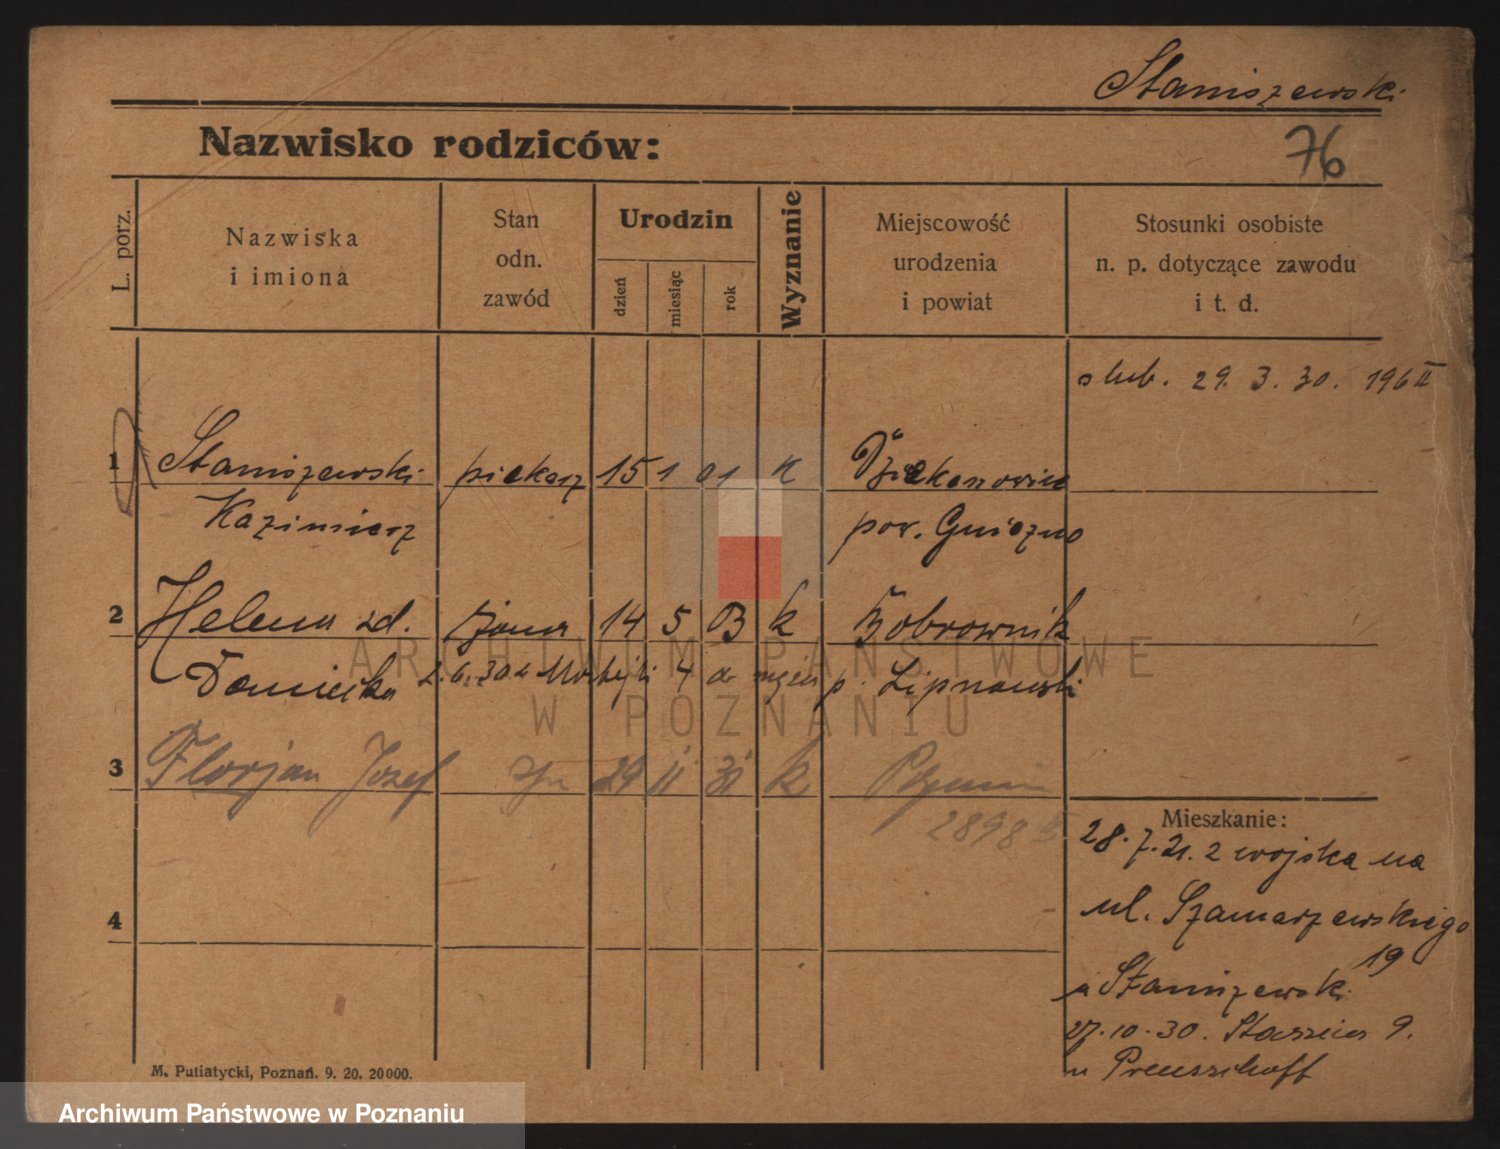 Staniszewski
Nazwisko rodziców:
76
L. porz.
Nazwiska
i imiona
Stan
odn.
zawód
Urodzin
dzień
miesiąc
rok
Wyznanie
Miejscowość
urodzenia
i powiat
Stosunki osobiste
n. p. dotyczące zawodu
i t. d.
slub. 29. 3. 30. 196 II
1 Staniszewski piekarz 15 1 01 K Dziekanowice
Kazimierz pow. Gniezno
2 Helena zd. żona 14 5 03 k Bobrownik
2. 6. 30 p. Lipnowski
3 Florjan Józef syn 29 11 31 k
2898 II
4
Mieszkanie:
28. 7. 21. z wojska na
ul. Szamarzewskiego
19
u Staniszewski
27. 10. 30. Staszica 9.
u Preusshoff
M. Putiatycki, Poznań. 9. 20. 20000.
ARCHIWUM PAŃSTWOWE
W POZNANIU
Archiwum Państwowe w Poznaniu